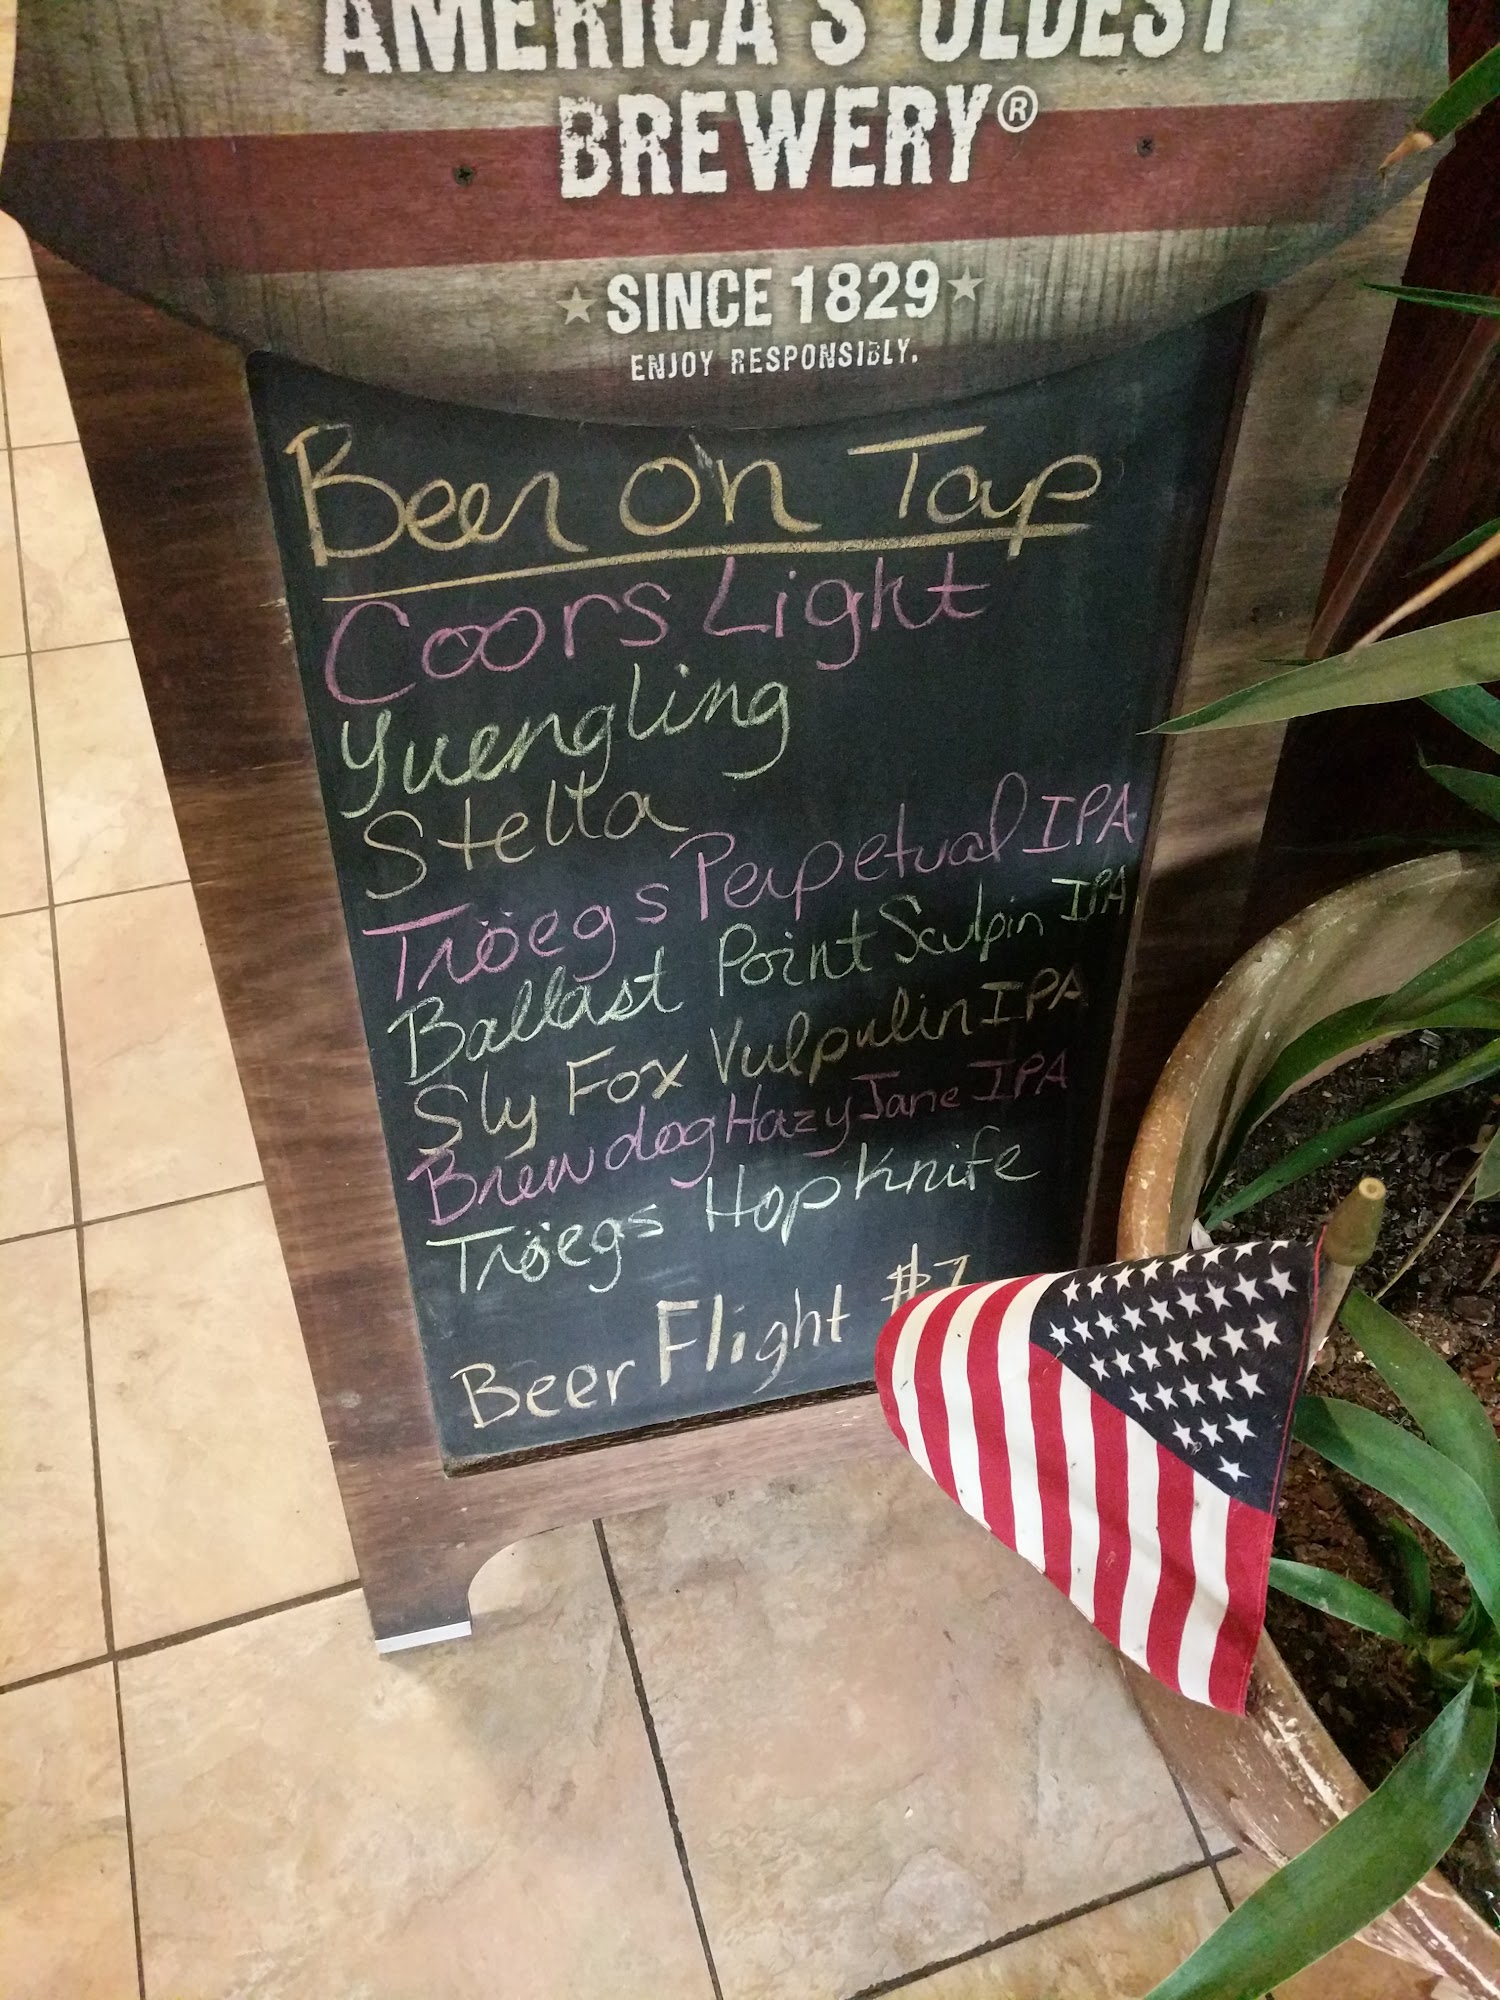 AMERICA'S OLDEST
BREWERY®
SINCE 1829
ENJOY RESPONSIBLY.
Beer On Tap
Coors Light
Yuengling
Stella
Tröegs Perpetual IPA
Ballast Point Sculpin IPA
Sly Fox Vulpulin IPA
Brewdog Hazy Jane IPA
Tröegs Hop Knife
Beer Flight